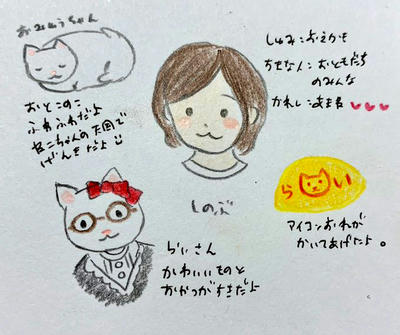 おみゅうちゃん
おとこのこ
ふわふわだよ
ねこちゃんの天国で
げんきだよ
しゅみ:おえかき
すきな人:おともだち
のみんな
かれし:
しのぶ
らい
アイコンおれが
かいてあげたよ。
らいさん
かわいいものと
おやつがすきだよ